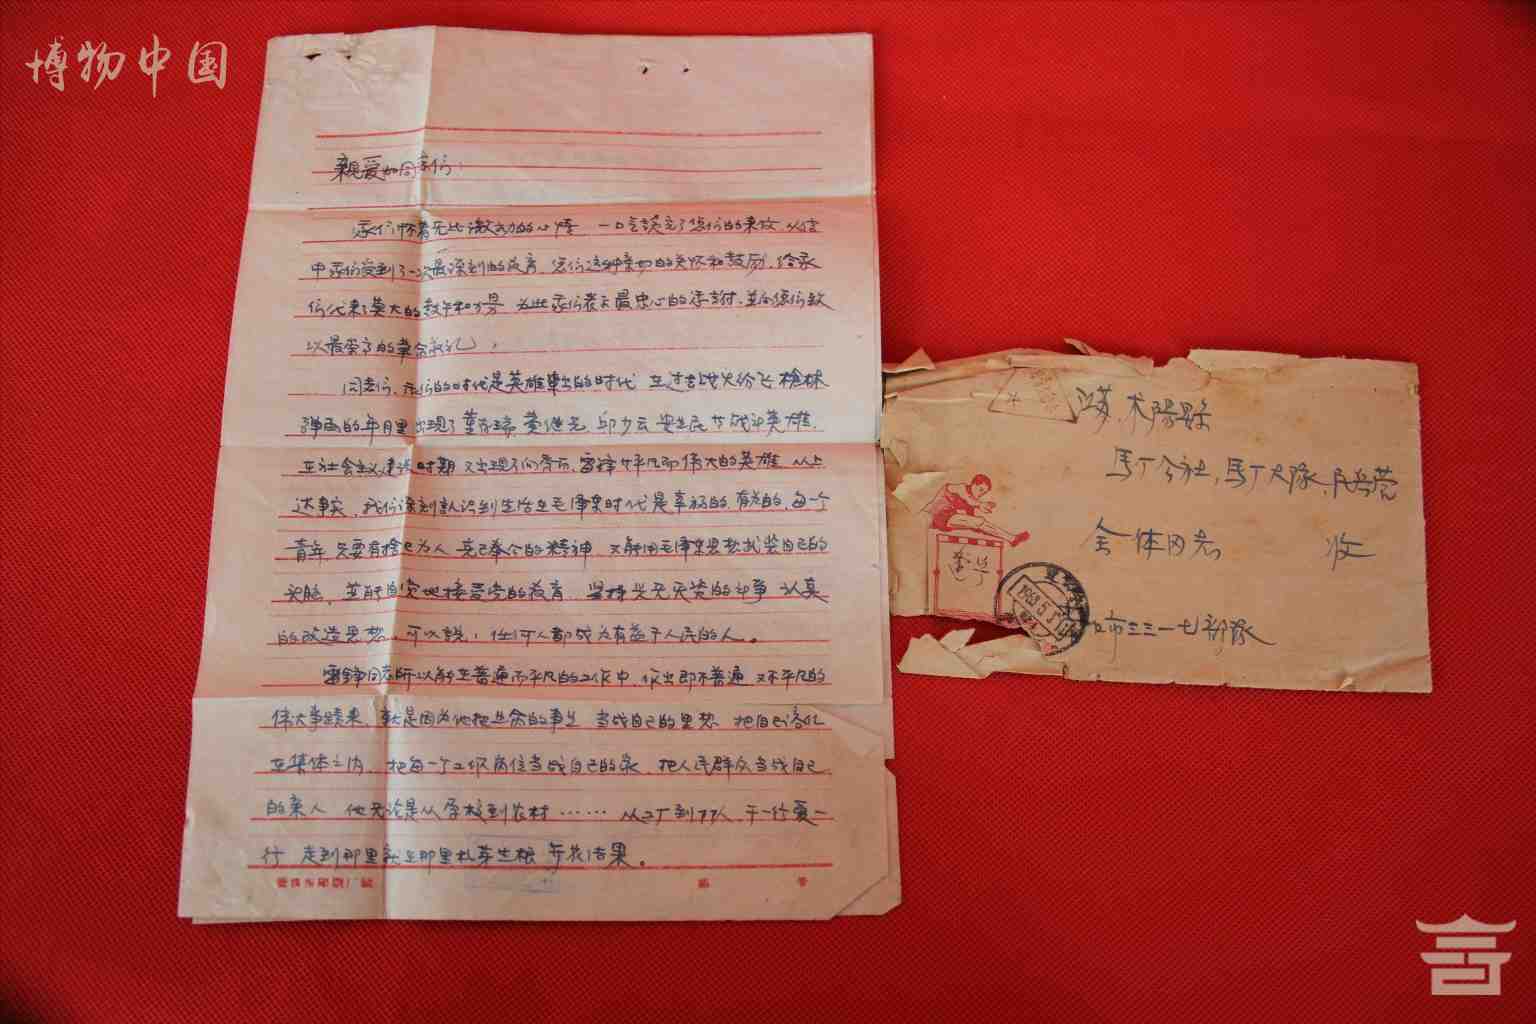 博物中国
亲爱的同志们：
我们怀着无比激动的心情 一口气读完了您们的来信 从信
中我们受到了一次最深刻的教育 您们这种亲切的关怀和鼓励 给我
们代来了莫大的教育和力量 为此我们表示最忠心的感谢 并向您们致
以最崇高的革命敬礼
同志们 我们的时代是英雄辈出的时代 在过去战火纷飞 枪林
弹雨的年月里 出现了董存瑞 黄继光 邱少云 安业民 等战斗英雄
在社会主义建设时期 又出现了向秀丽、雷锋等平凡而伟大的英雄 从上
述事实 我们深刻认识到生活在毛泽东时代是幸福的 有为的 每一个
青年 只要有捨己为人 克己奉公的精神 又能用毛泽东思想武装自己的
头脑 并能自觉地接受党的教育 坚持兴无灭资的斗争 认真
的改造思想 可以说 任何人都成为有益于人民的人。
雷锋同志所以能在普通而平凡的工作中 作出即不普通 又不平凡的
伟大事绩来 就是因为他把革命的事业 当成自己的理想 把自己溶化
在集体之内 把每一个工作岗位当成自己的家 把人民群众当成自己
的亲人 他无论是从学校到农村…… 从工厂到 干一行爱一
行 走到那里就在那里扎芽生根 开花结果。
江苏 沭阳县
马厂公社，马厂大队，民兵营
全体同志 收
市三三一七部队